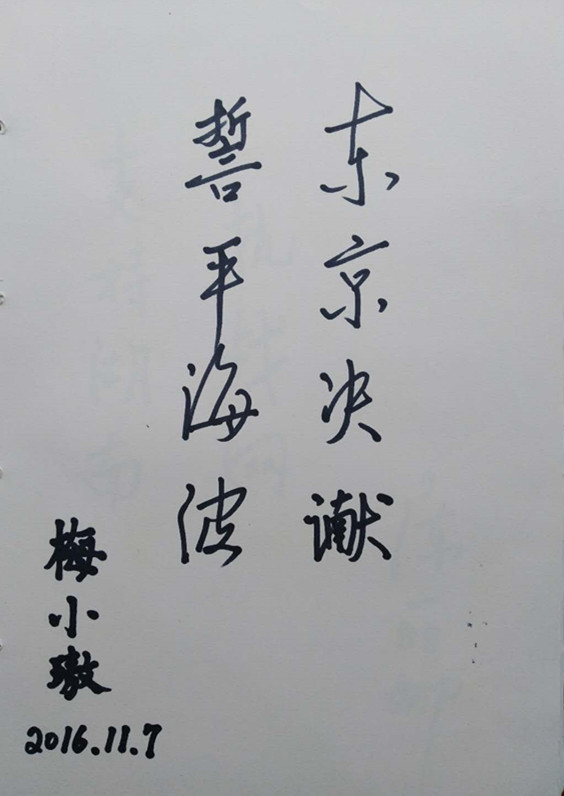 东京决谳
誓平海波
梅小璈
2016.11.7